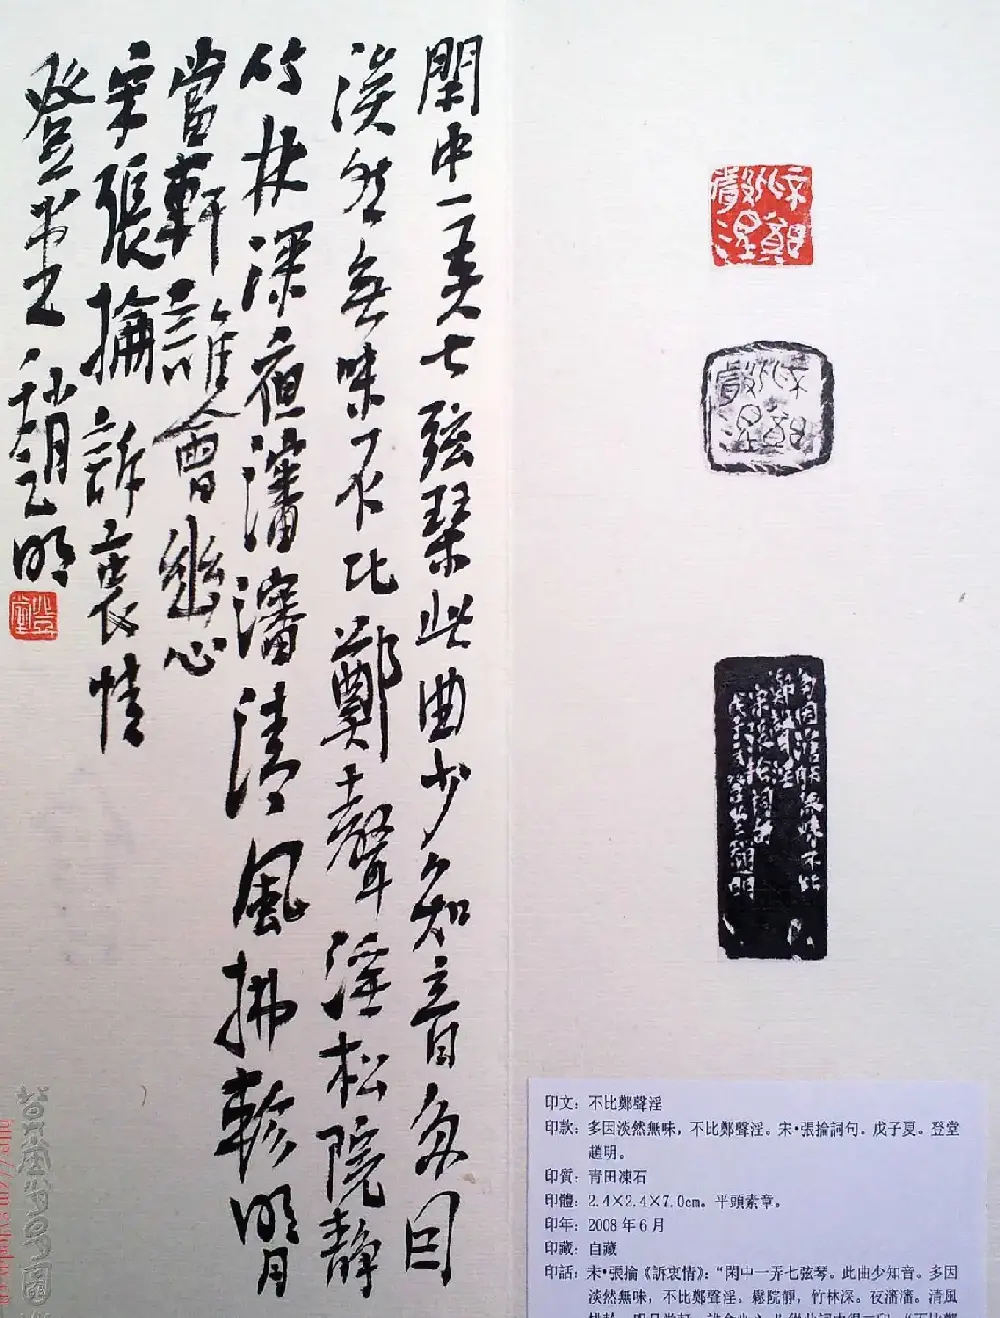 閒中一弄七弦琴此曲少知音多因
淡然無味不比鄭聲淫松院靜
竹林深夜瀋瀋清風拂軫明月
當軒誰會幽心
宋張掄訴衷情
登堂
趙明
登堂
不比鄭聲淫
不比鄭聲淫
多因淡然無味不比
鄭聲淫
印文：不比鄭聲淫
印款：多因淡然無味，不比鄭聲淫。宋·張掄詞句。戊子夏。登堂
趙明。
印質：青田凍石
印體：2.4×2.4×7.0cm。平頭素章。
印年：2008年6月
印藏：自藏
印話：宋·張掄《訴衷情》：“閑中一弄七弦琴。此曲少知音。多因
淡然無味，不比鄭聲淫。松院靜，竹林深。夜瀋瀋。清風